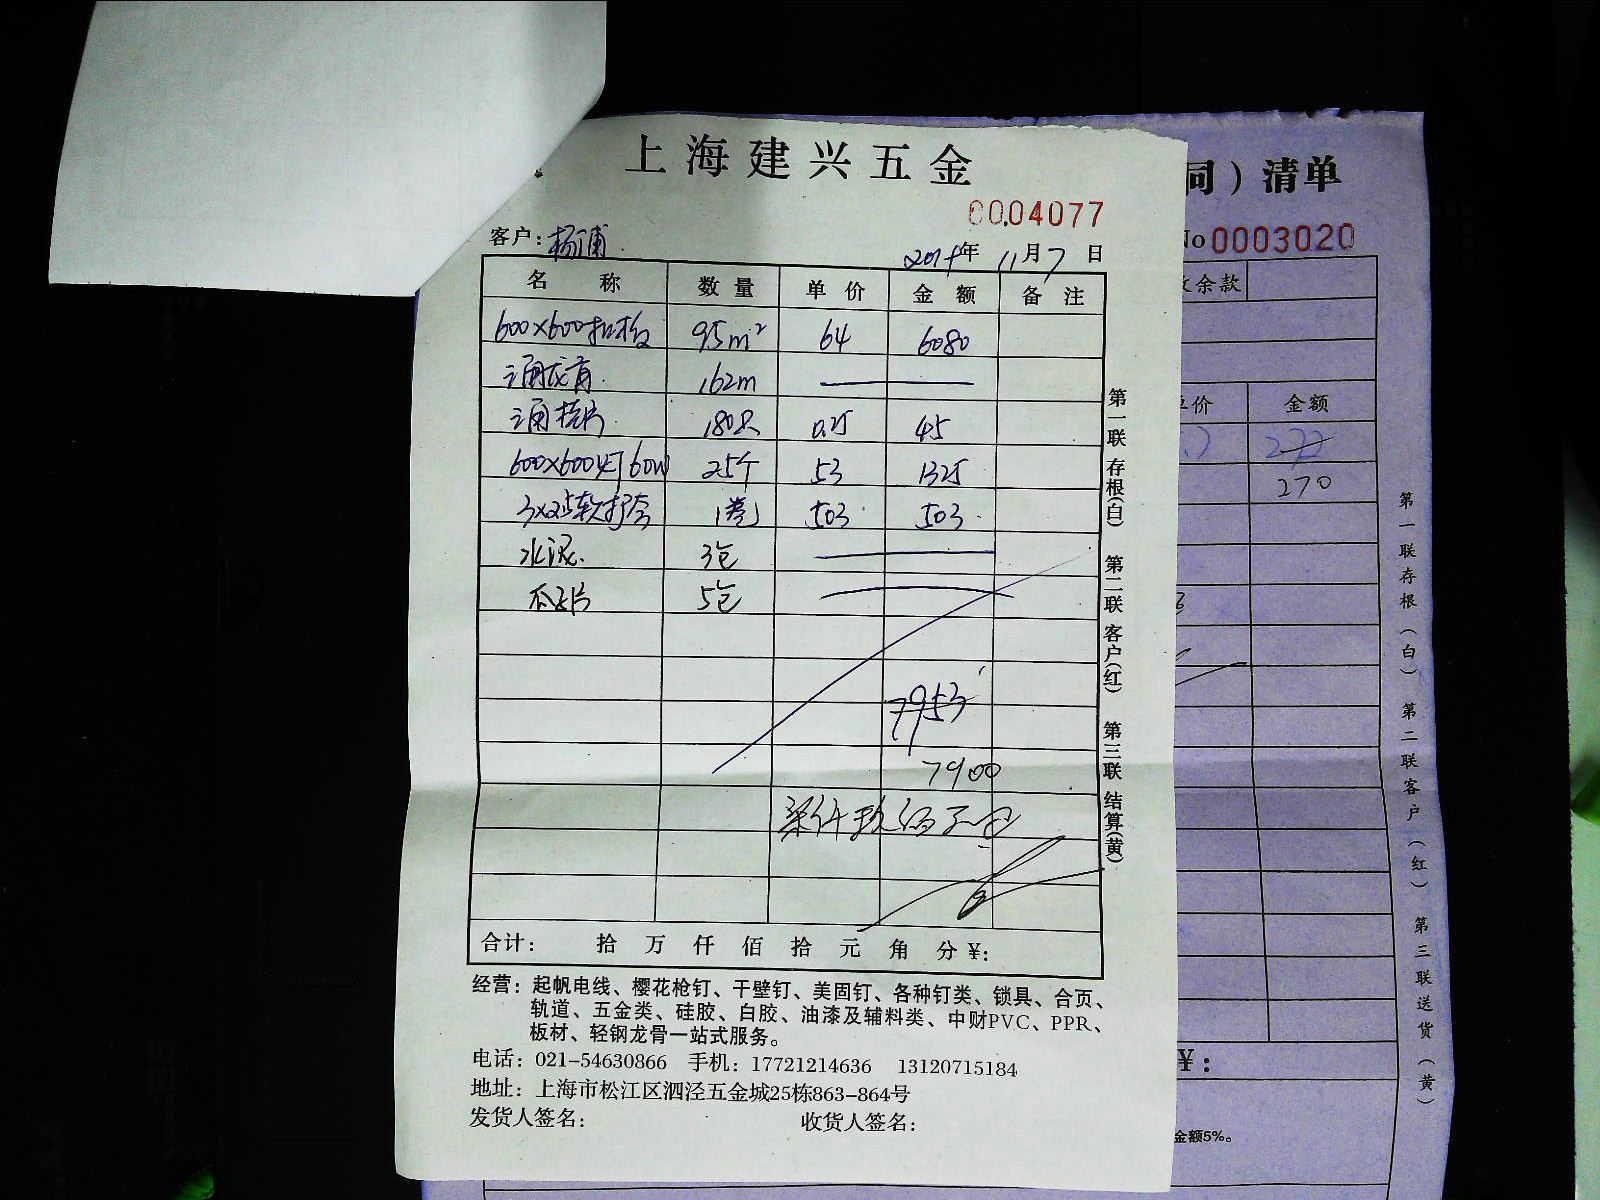 上海建兴五金
0004077
客户：杨浦
年 11月7日
名称 数量 单价 金额 备注
600×600扣板 95m² 64 6080
三角龙骨 162m
三角挂片 180只 0.25 45
600×600灯60W 25个 53 1325
3×2.5软护套 1卷 503 503
水泥 3包
瓜子片 5包
7953
7900
柒仟玖佰元正
合计： 拾 万 仟 佰 拾 元 角 分 ¥：
第一联 存根(白) 第二联 客户(红) 第三联 结算(黄)
经营：起帆电线、樱花枪钉、干壁钉、美固钉、各种钉类、锁具、合页、
轨道、五金类、硅胶、白胶、油漆及辅料类、中财PVC、PPR、
板材、轻钢龙骨一站式服务。
电话：021-54630866 手机：17721214636 13120715184
地址：上海市松江区泗泾五金城25栋863-864号
发货人签名： 收货人签名：
同）清单
No 0003020
余款
单价 金额
272
270
¥：
金额5%。
第一联存根（白） 第二联客户（红） 第三联送货（黄）